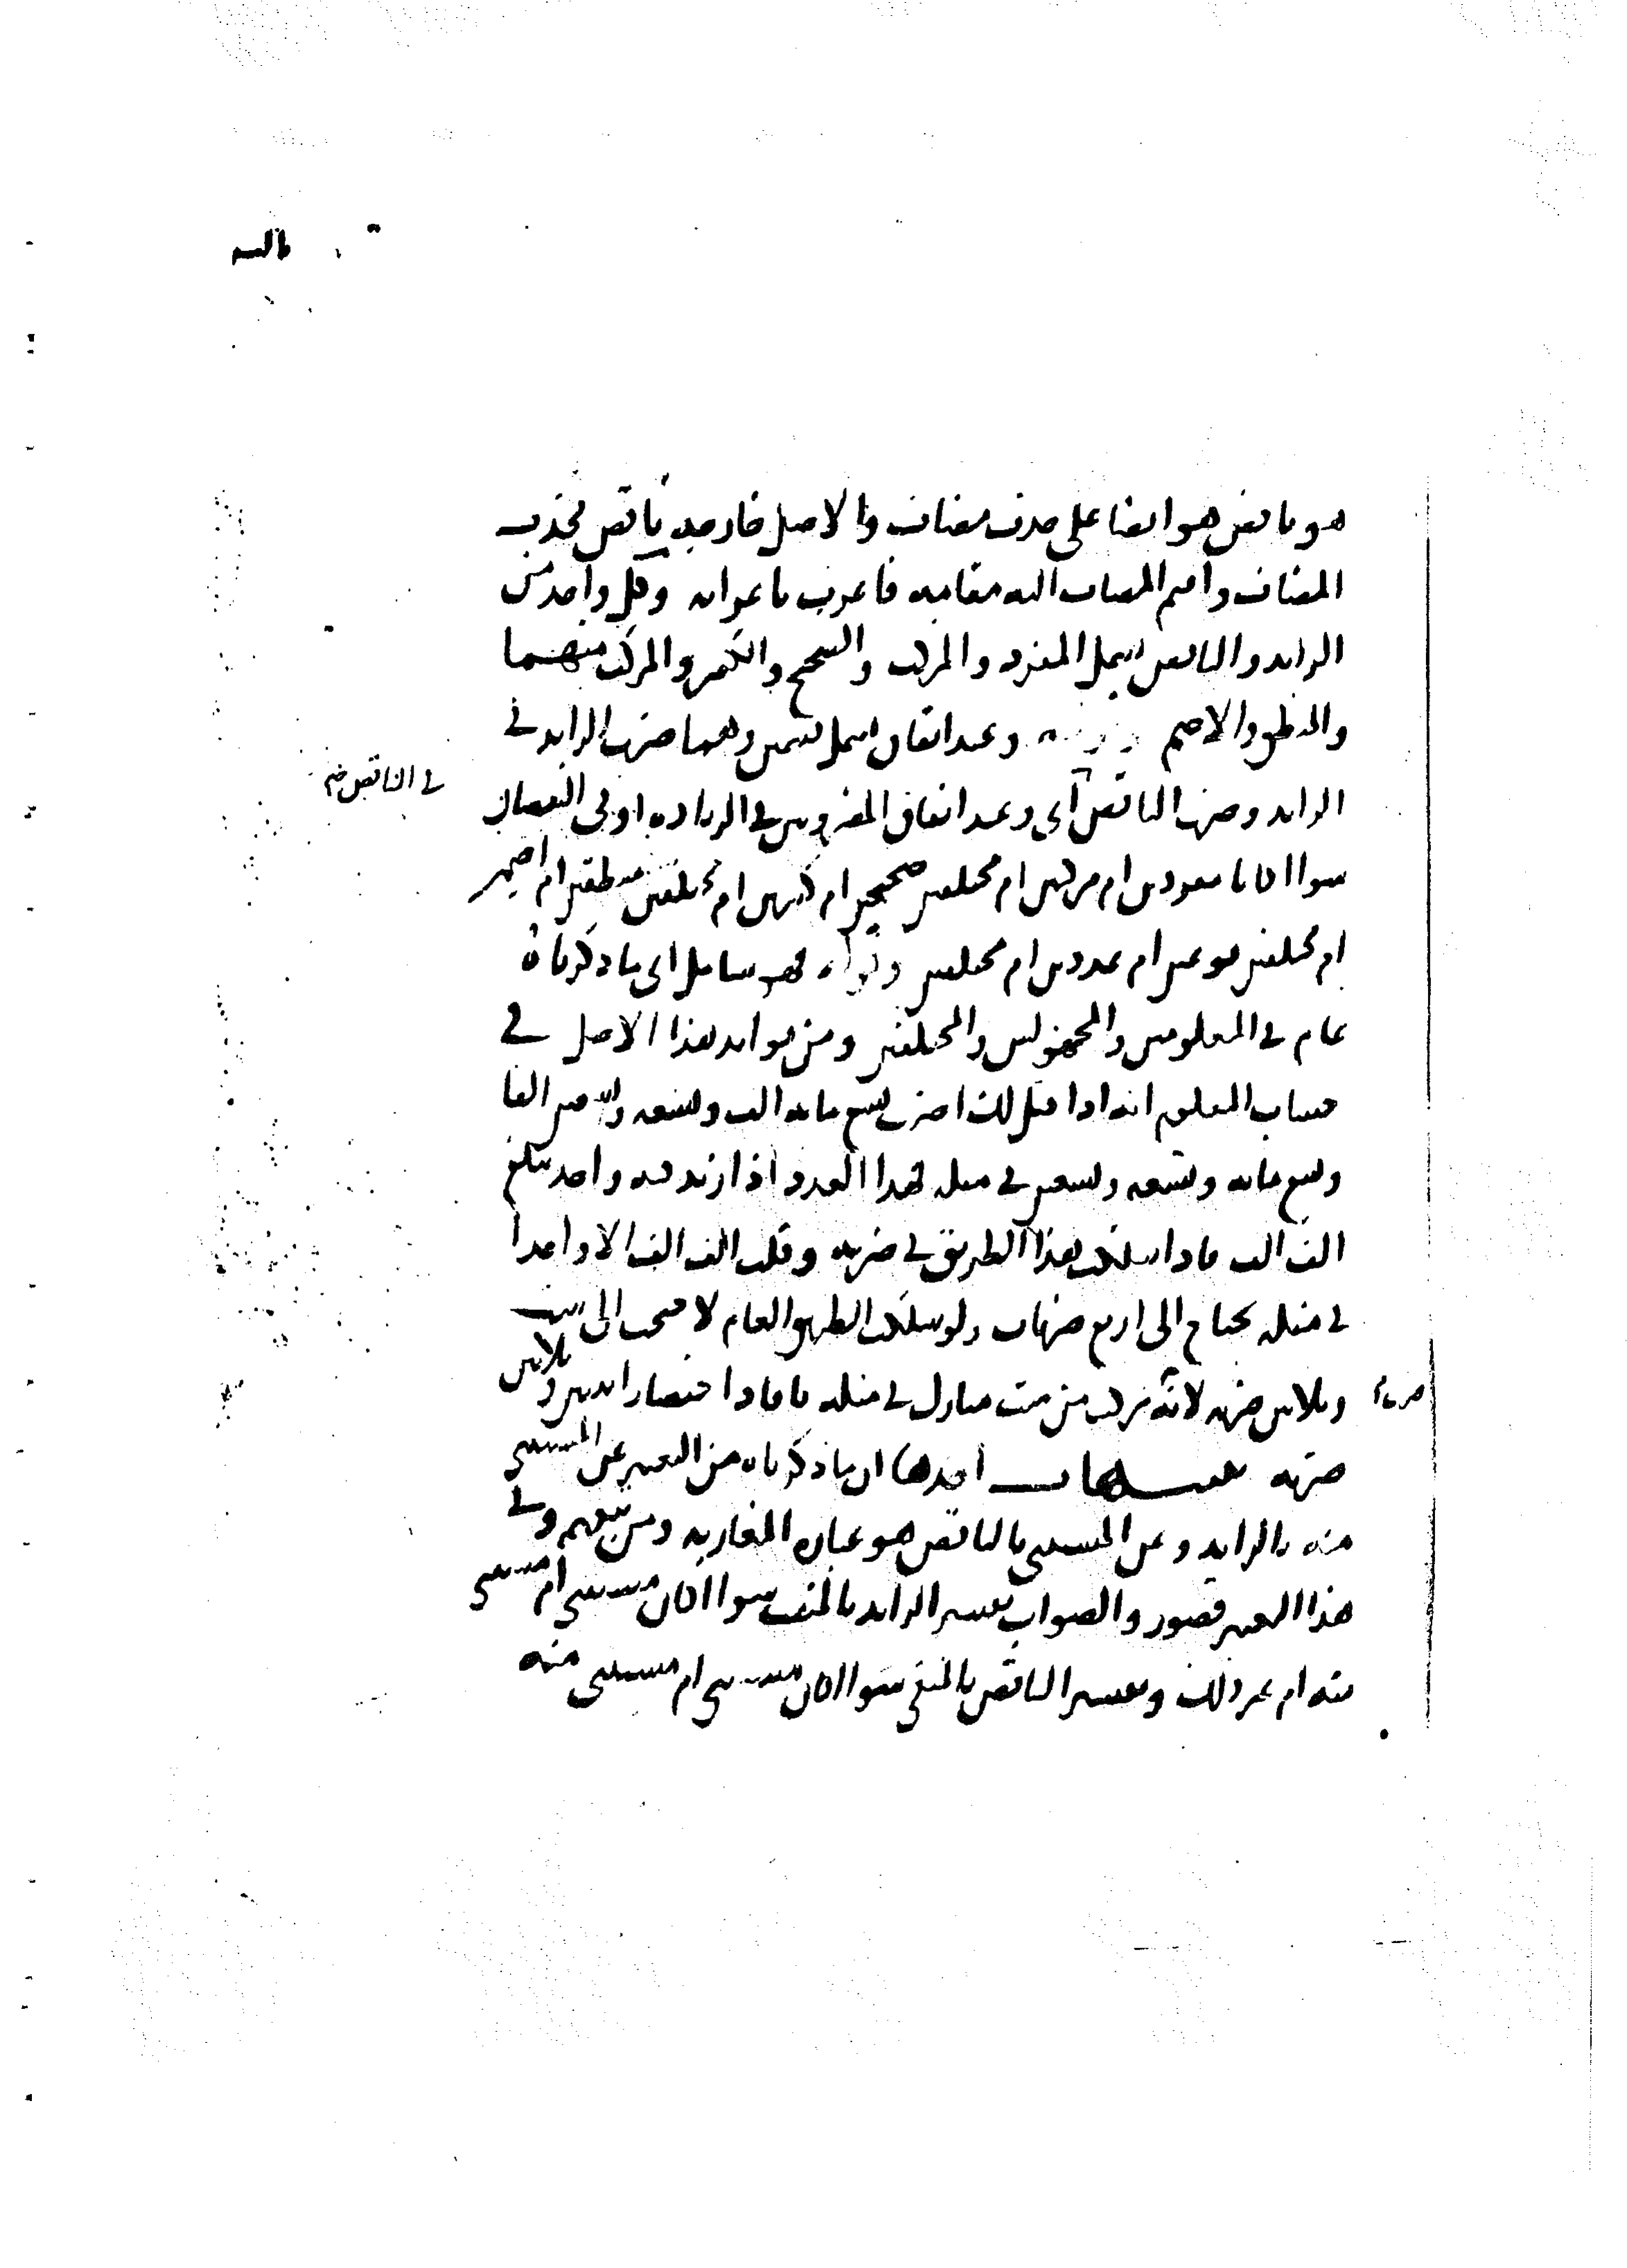 هو ناقص هو ايضا على حذف مضاف والاصل خارجه ناقص فحذف
المضاف واقيم المضاف اليه مقامه فاعرب باعرابه وكل واحد من
الزايد والناقص يشمل المفرد والمركب والصحيح والكسر والمركب منهما
والمنطق والاصم وعند اتفاق يشمل قسمين وهما ضرب الزايد في
الزايد وضرب الناقص اى وعند اتفاق المضروبين في الزيادة او في النقصان
في الناقص صح
سوا كانا مفردين ام مركبين ام مختلفين صحيحين ام كسرين ام مختلفين منطقين ام اصمين
ام مختلفين نوعين ام عددين ام مختلفين فهو شامل اى ما ذكرناه
عام في المعلومين والمجهولين والمختلفين ومن فوايد هذا الاصل في
حساب المعلوم انه اذا قيل لك اضرب تسع ماية الف وتسعة وتسعين الفا
وتسع ماية وتسعة وتسعين في مثله فهذا العدد اذا زيد فيه واحد يبلغ
الف الف فاذا سلكت هذا الطريق في ضربه وقلت الف الف الا واحدا
في مثله يحتاج الى اربع ضربات ولو سلكت الطريق العام لاحتجت الى ست
وثلاثين ضربة لانه مركب من ست منازل في مثله فافاد اختصار اثنين وثلاثين
ضربة تنبيهات احدها ان ما ذكرناه من التعبير عن المستثنى
منه بالزايد وعن المستثنى بالناقص هو عبارة المغاربة ومن تبعهم وفي
هذا التعبير قصور والصواب تفسير الزايد بالمثبت سوا كان مستثنى ام مستثنى
منه ام غير ذلك وتفسير الناقص بالمنفي سوا كان مستثنى ام مستثنى منه